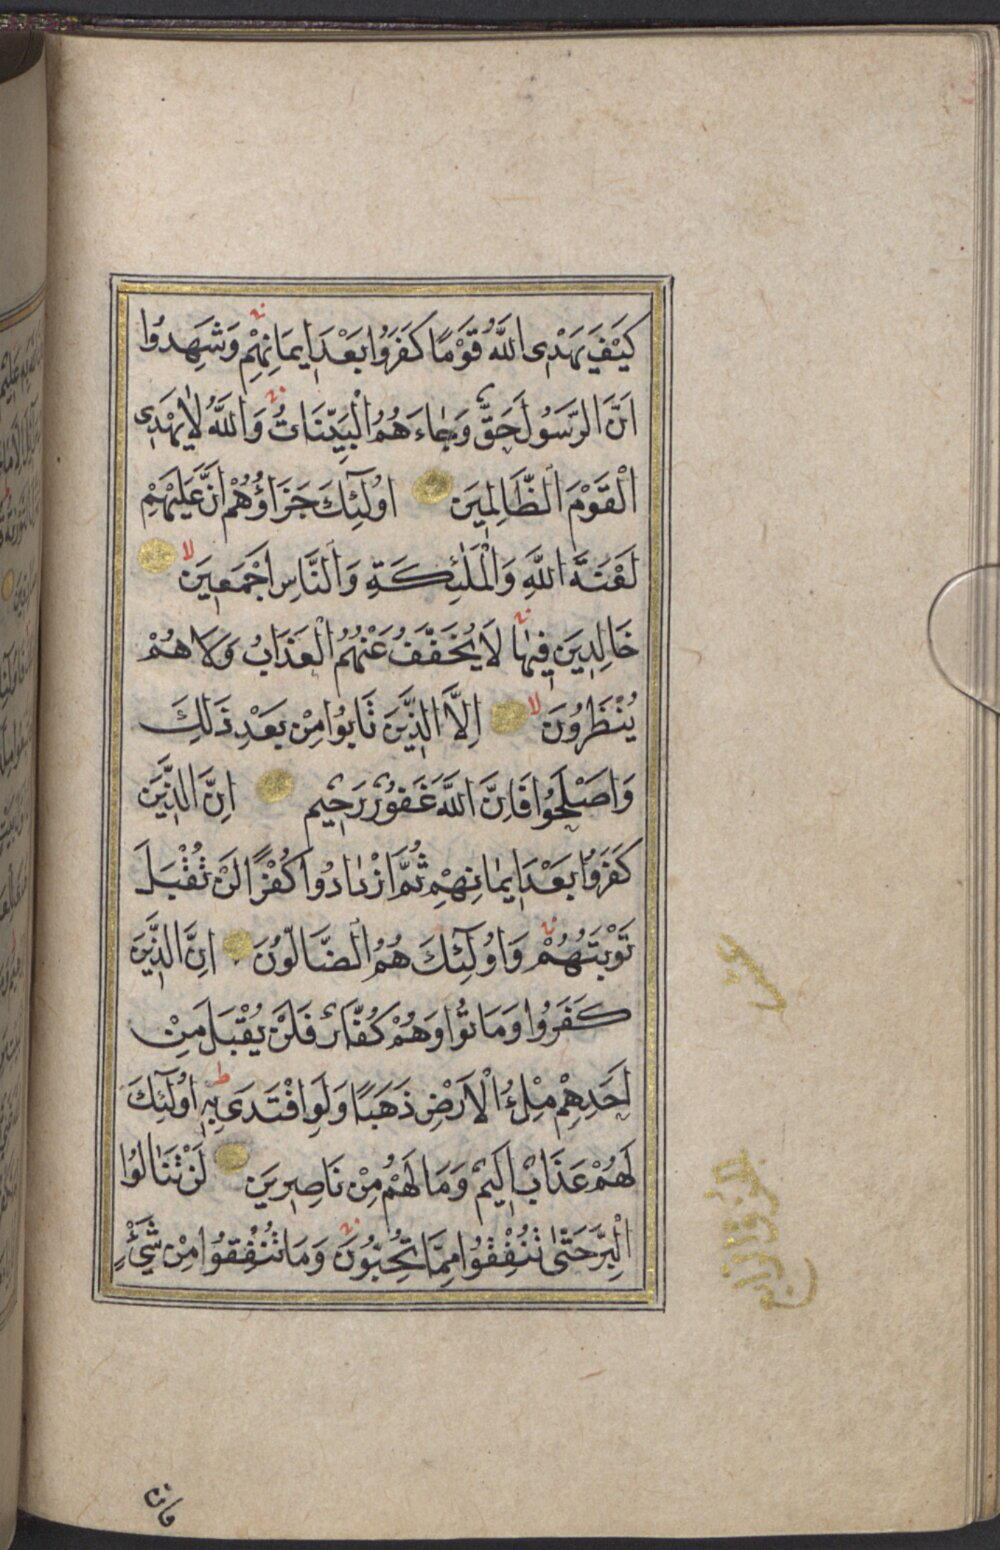 كَيْفَ يَهْدِى اللّٰهُ قَوْمًا كَفَرُوا بَعْدَ ايمَانِهِمْ وَشَهِدُوا
اَنَّ الرَّسُولَ حَقٌّ وَجَاءَهُمُ الْبَيِّنَاتُ وَاللّٰهُ لَا يَهْدِى
الْقَوْمَ الظَّالِمِينَ اُولٰئِكَ جَزَاؤُهُمْ اَنَّ عَلَيْهِمْ
لَعْنَةَ اللّٰهِ وَالْمَلٰئِكَةِ وَالنَّاسِ اَجْمَعِينَ
خَالِدِينَ فِيهَا لَا يُخَفَّفُ عَنْهُمُ الْعَذَابُ وَلَا هُمْ
يُنْظَرُونَ اِلَّا الَّذِينَ تَابُوا مِنْ بَعْدِ ذٰلِكَ
وَاَصْلَحُوا فَاِنَّ اللّٰهَ غَفُورٌ رَحِيمٌ اِنَّ الَّذِينَ
كَفَرُوا بَعْدَ ايمَانِهِمْ ثُمَّ ازْدَادُوا كُفْرًا لَنْ تُقْبَلَ
تَوْبَتُهُمْ وَاُولٰئِكَ هُمُ الضَّالُّونَ اِنَّ الَّذِينَ
كَفَرُوا وَمَاتُوا وَهُمْ كُفَّارٌ فَلَنْ يُقْبَلَ مِنْ
اَحَدِهِمْ مِلْءُ الْاَرْضِ ذَهَبًا وَلَوِ افْتَدٰى بِهِ اُولٰئِكَ
لَهُمْ عَذَابٌ اَلِيمٌ وَمَا لَهُمْ مِنْ نَاصِرِينَ لَنْ تَنَالُوا
الْبِرَّ حَتّٰى تُنْفِقُوا مِمَّا تُحِبُّونَ وَمَا تُنْفِقُوا مِنْ شَيْءٍ
عشر
الجزء الرابع
فان